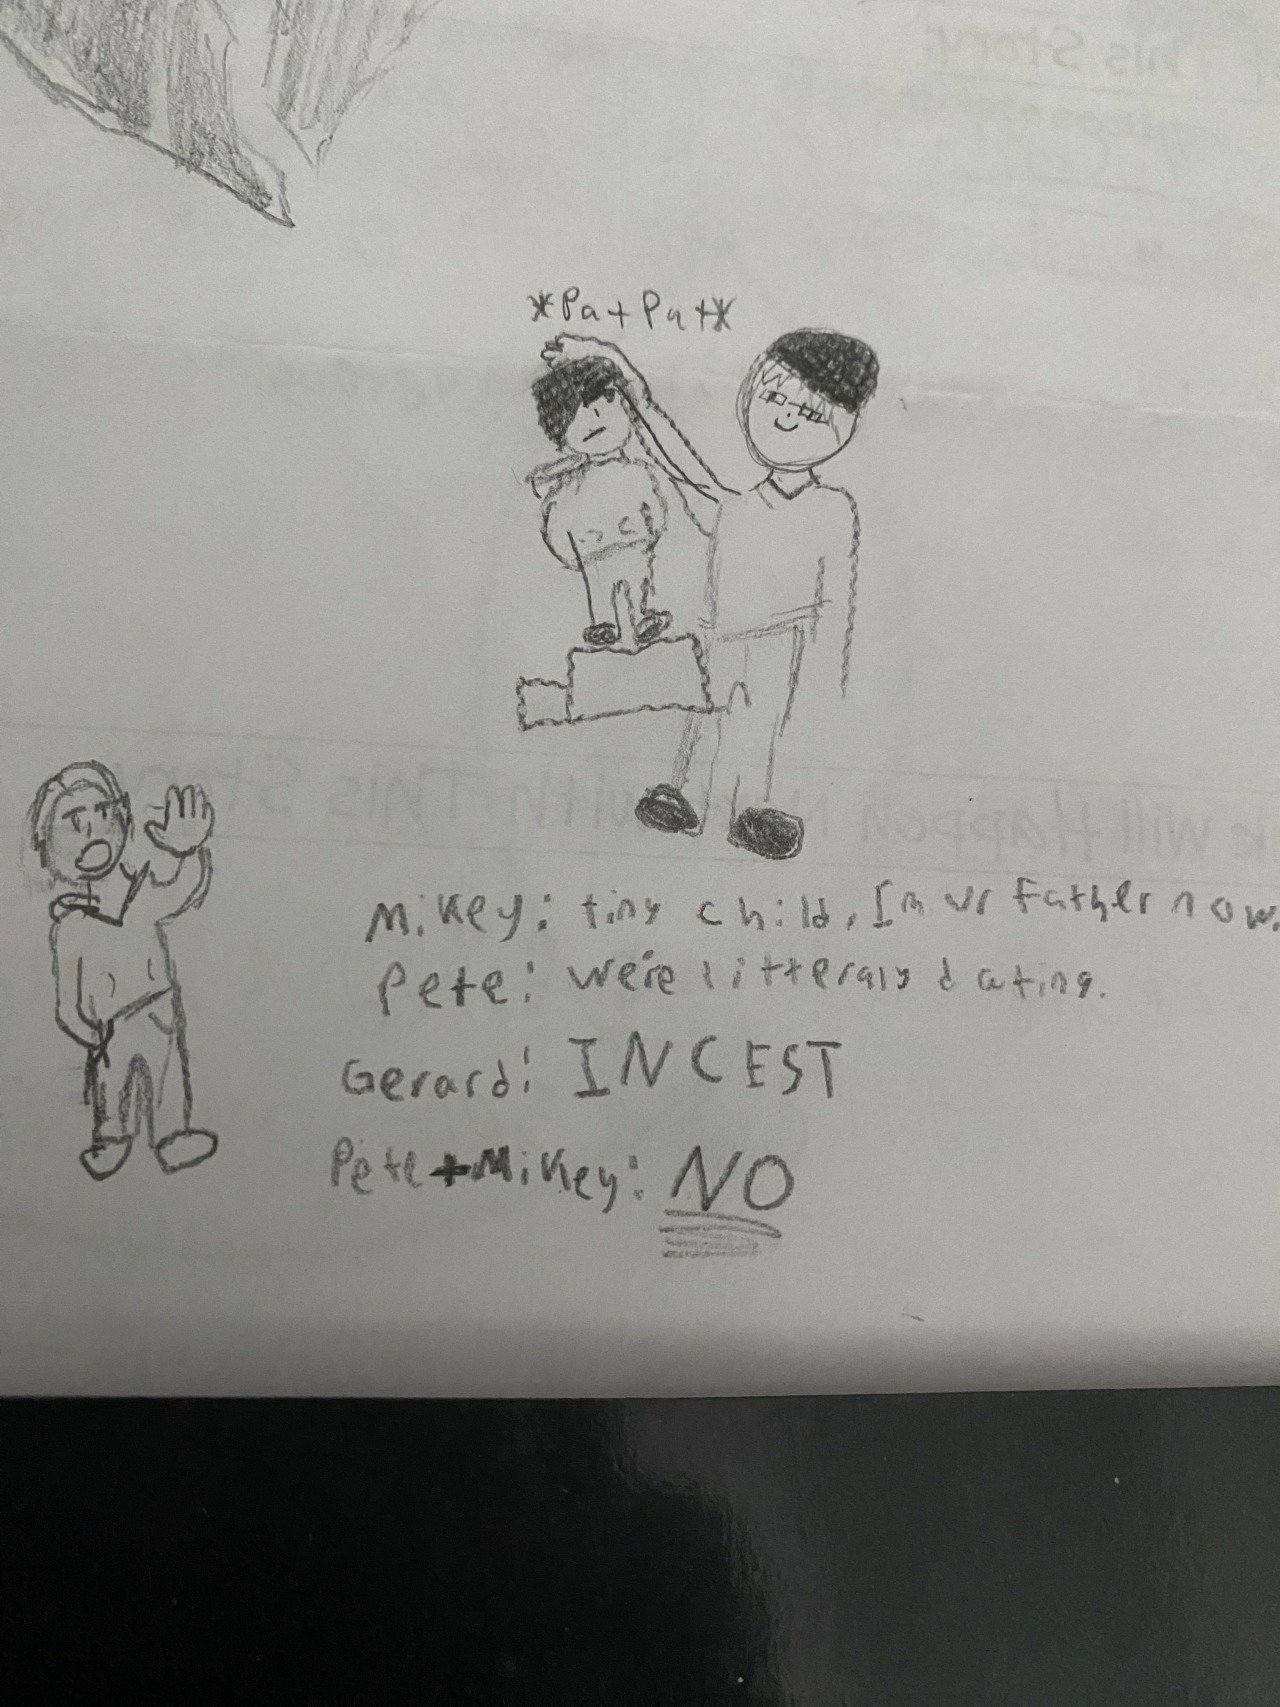 *Pat Pat*
Mikey: tiny child, Im ur father now.
Pete: we're litteraly dating.
Gerard: INCEST
Pete+Mikey: NO